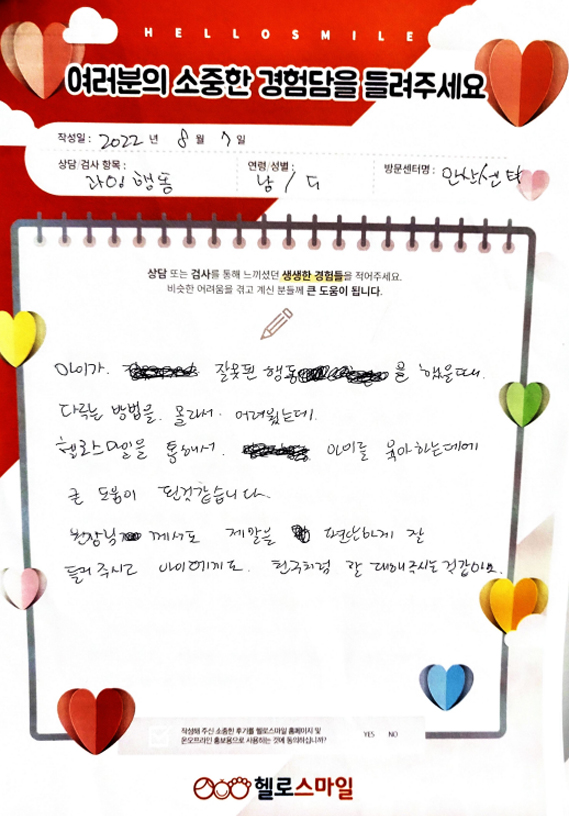 HELLOSMILE
여러분의 소중한 경험담을 들려주세요
작성일 : 2022 년 8 월 7 일
상담/검사 항목 : 과잉행동
연령/성별 : 남 /
방문센터명 : 안산센터
상담 또는 검사를 통해 느끼셨던 생생한 경험들을 적어주세요.
비슷한 어려움을 겪고 계신 분들께 큰 도움이 됩니다.
아이가 잘못된 행동을 했을때.
다루는 방법을. 몰라서. 어려웠는데.
헬로스마일을 통해서. 아이를 육아하는데에
큰 도움이 된것같습니다.
원장님께서도 제말을 편안하게 잘
들어주시고 아이에게도. 친구처럼 잘 대해주시는것같아요.
작성해 주신 소중한 후기를 헬로스마일 홈페이지 및
온오프라인 홍보용으로 사용하는 것에 동의하십니까?
YES NO
헬로스마일